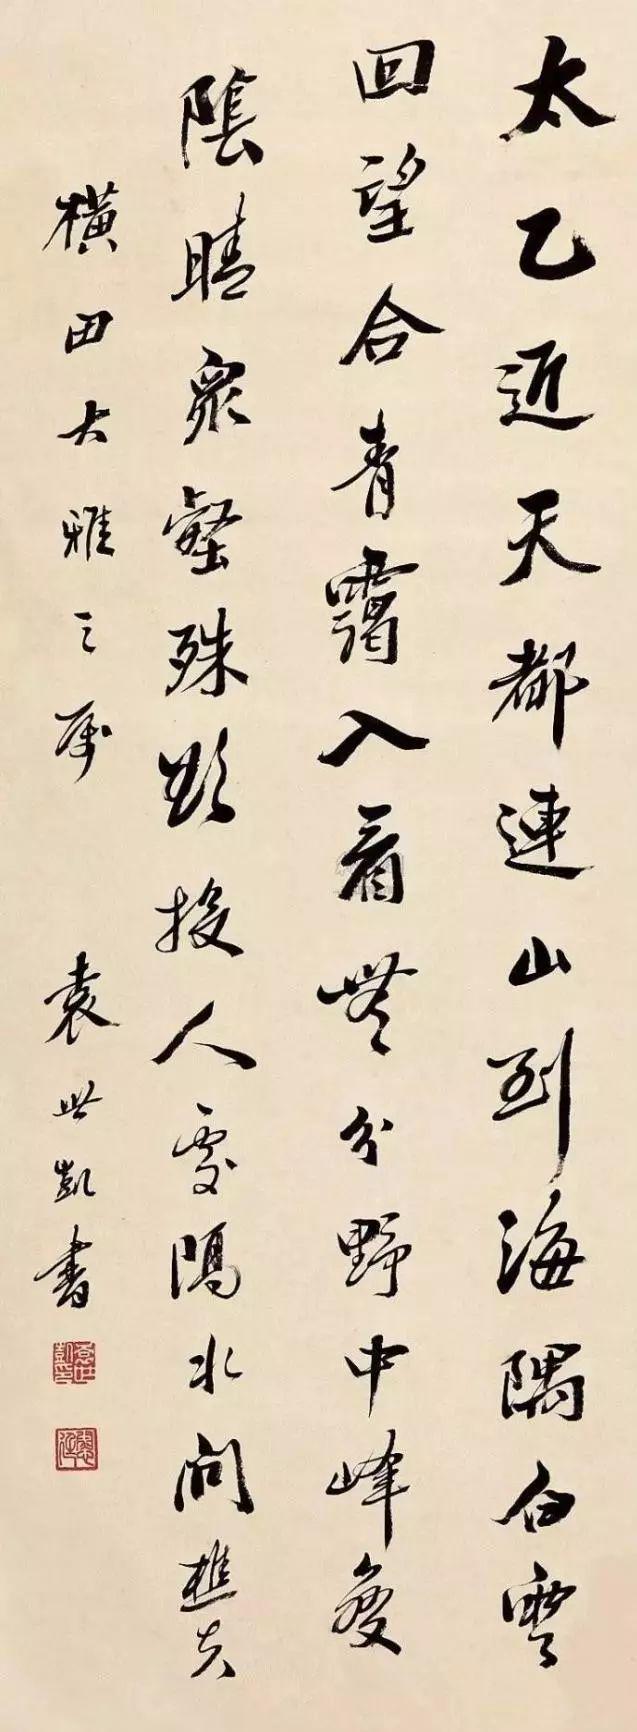 太乙近天都連山到海隅白雲
回望合青靄入看無分野中峰變
陰晴衆壑殊欲投人處隔水問樵夫
橫田大雅之屬
袁世凱書
袁世凱印